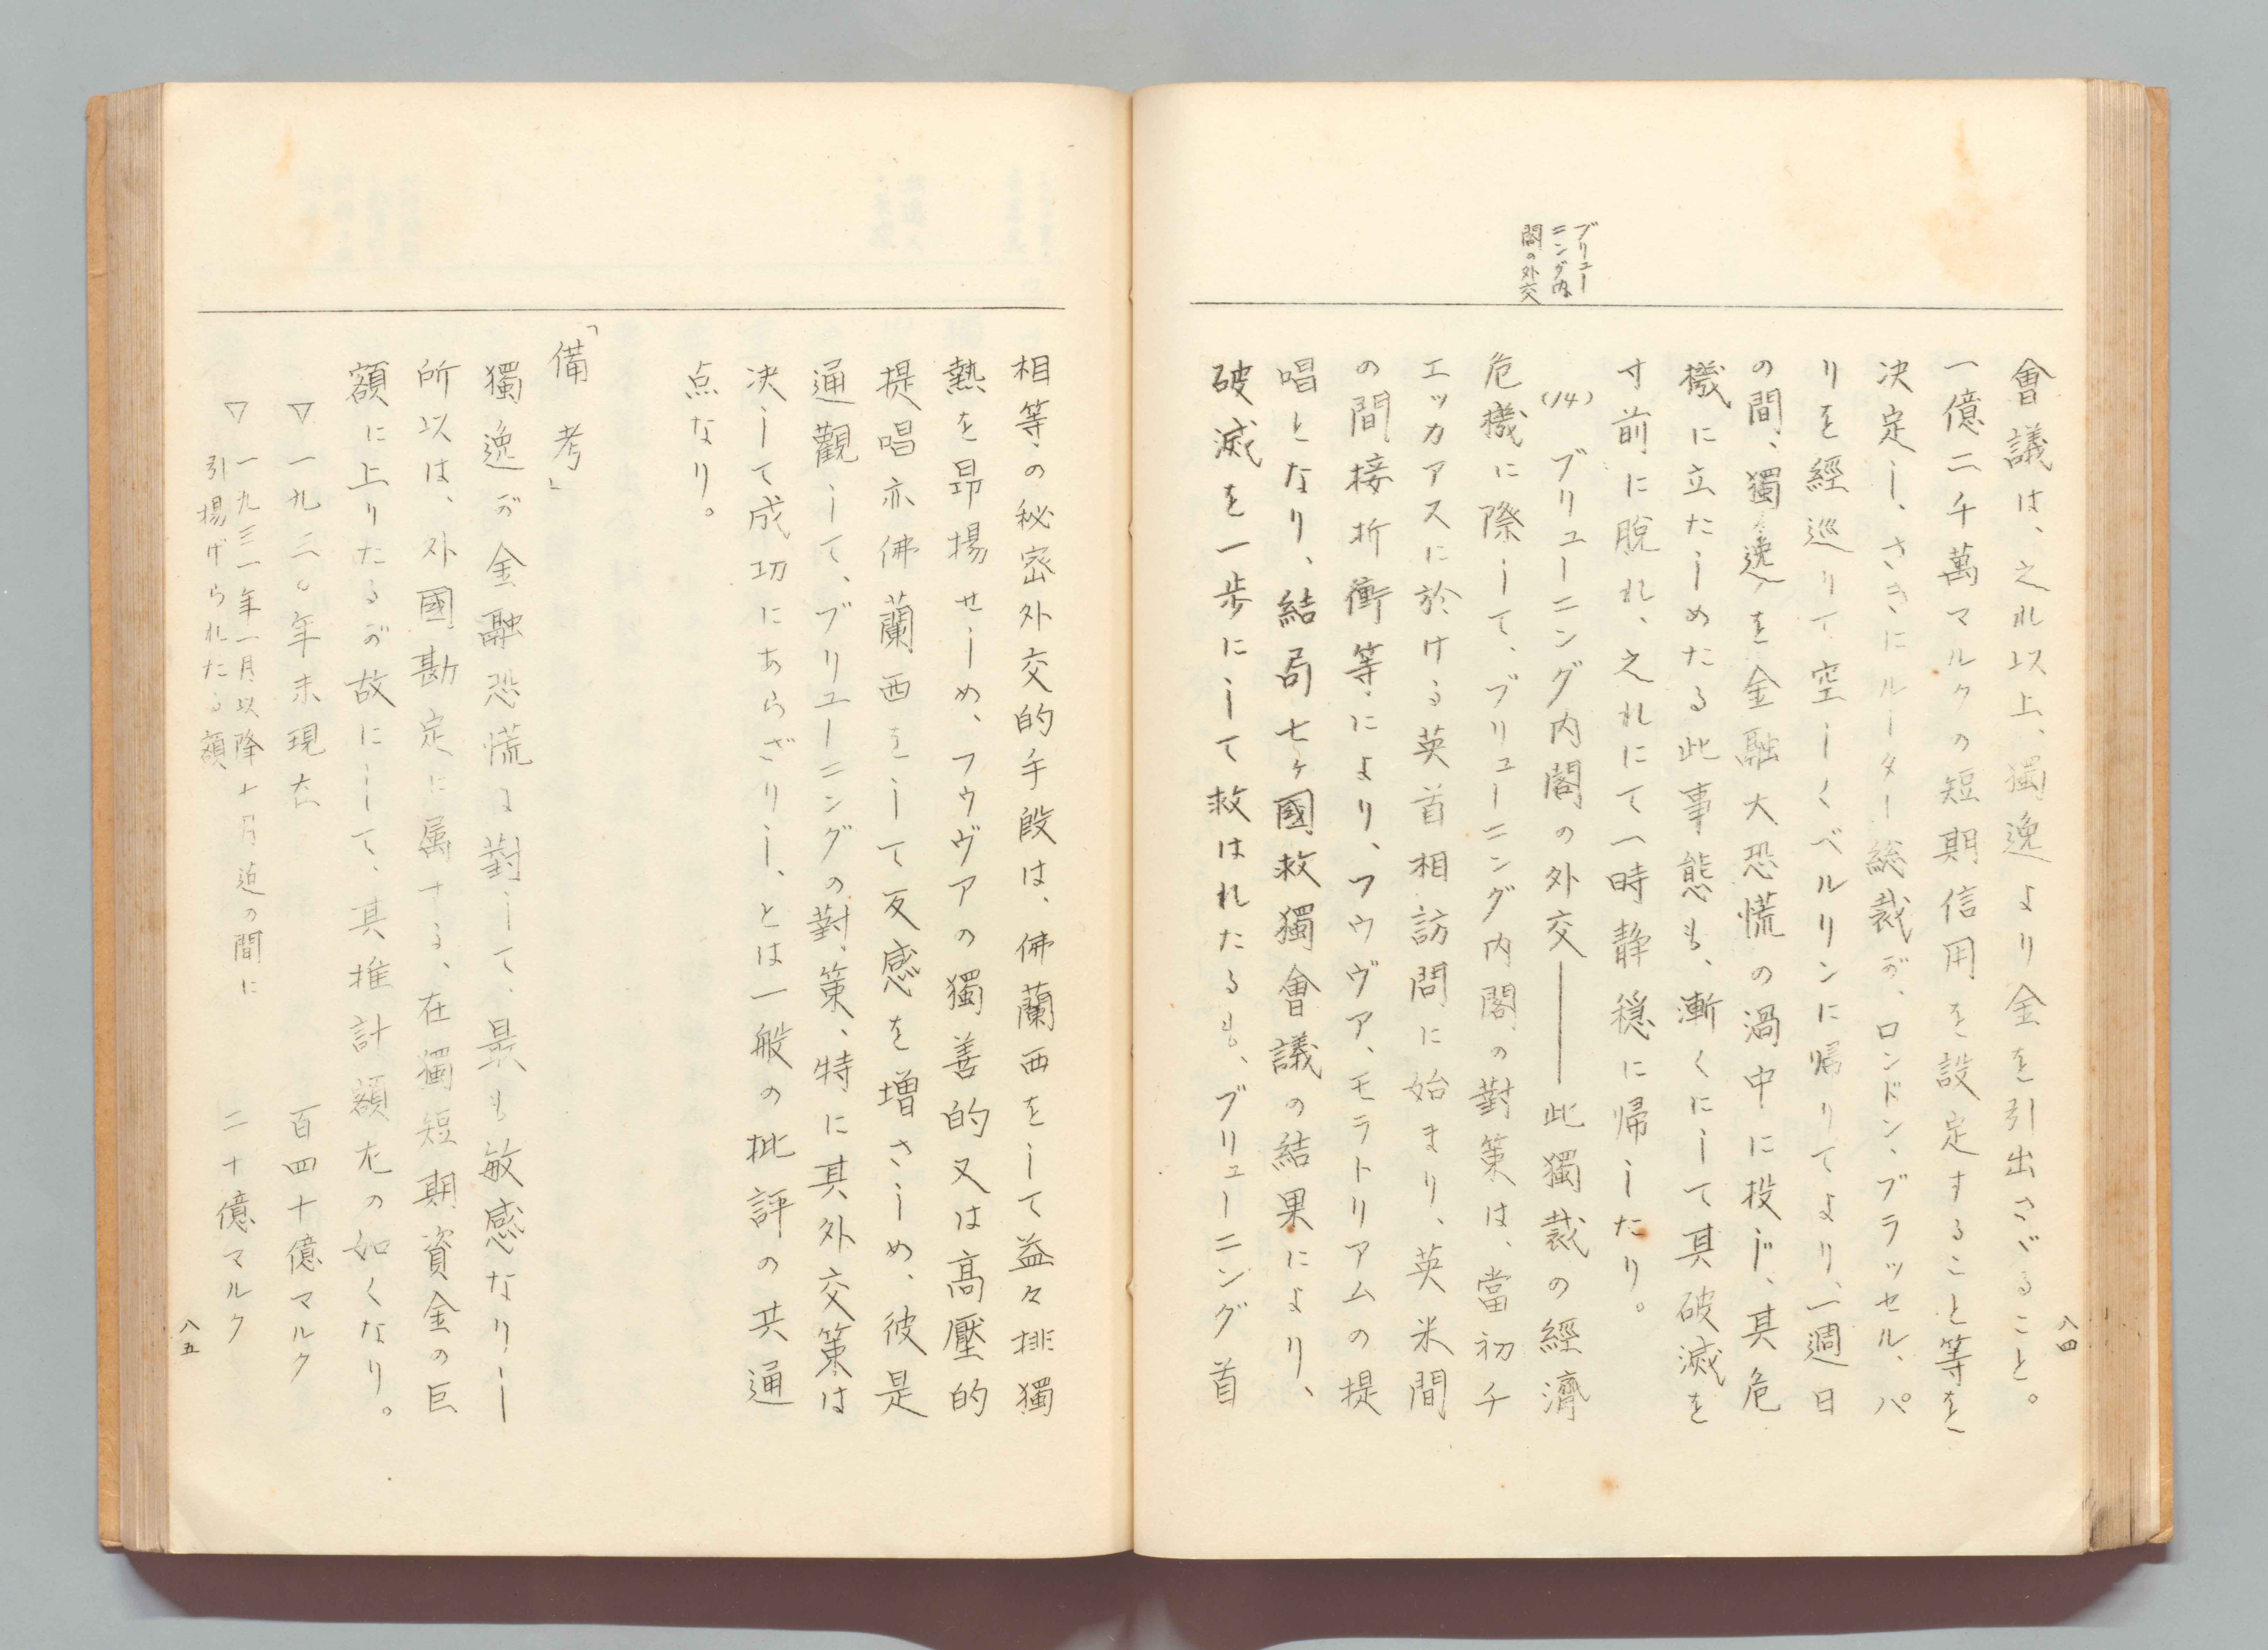 八四
ブリュー
ニング内
閣の外交
會議は、之れ以上、獨逸より金を引出さゞること。
一億二千萬マルクの短期信用を設定すること等を
決定し、さきにルーター総裁が、ロンドン、ブラッセル、パ
リを經巡りて空しくベルリンに帰りてより、一週日
の間、獨逸を金融大恐慌の渦中に投じ、其危
機に立たしめたる此事態も、漸くにして其破滅を
寸前に脱れ、之れにて一時静穏に帰したり。
(14) ブリューニング内閣の外交――此獨裁の經濟
危機に際して、ブリューニング内閣の對策は、當初チ
エッカアスに於ける英首相訪問に始まり、英米間
の間接折衝等により、フゥヴァ、モラトリアムの提
唱となり、結局七ヶ國救獨會議の結果により、
破滅を一歩にして救はれたるも、ブリューニング首
相等の秘密外交的手段は、佛蘭西をして益々排獨
熱を昴揚せしめ、フゥヴァの獨善的又は高壓的
提唱亦佛蘭西をして反感を増さしめ、彼是
通觀して、ブリューニングの對策、特に其外交策は
决して成功にあらざりし、とは一般の批評の共通
点なり。
「備考」
獨逸が金融恐慌に對して、最も敏感なりし
所以は、外國勘定に属する、在獨短期資金の巨
額に上りたるが故にして、其推計額左の如くなり。
▽ 一九三〇年末現在 百四十億マルク
▽ 一九三一年一月以降七月迄の間に
引揚げられたる額 二十億マルク
八五